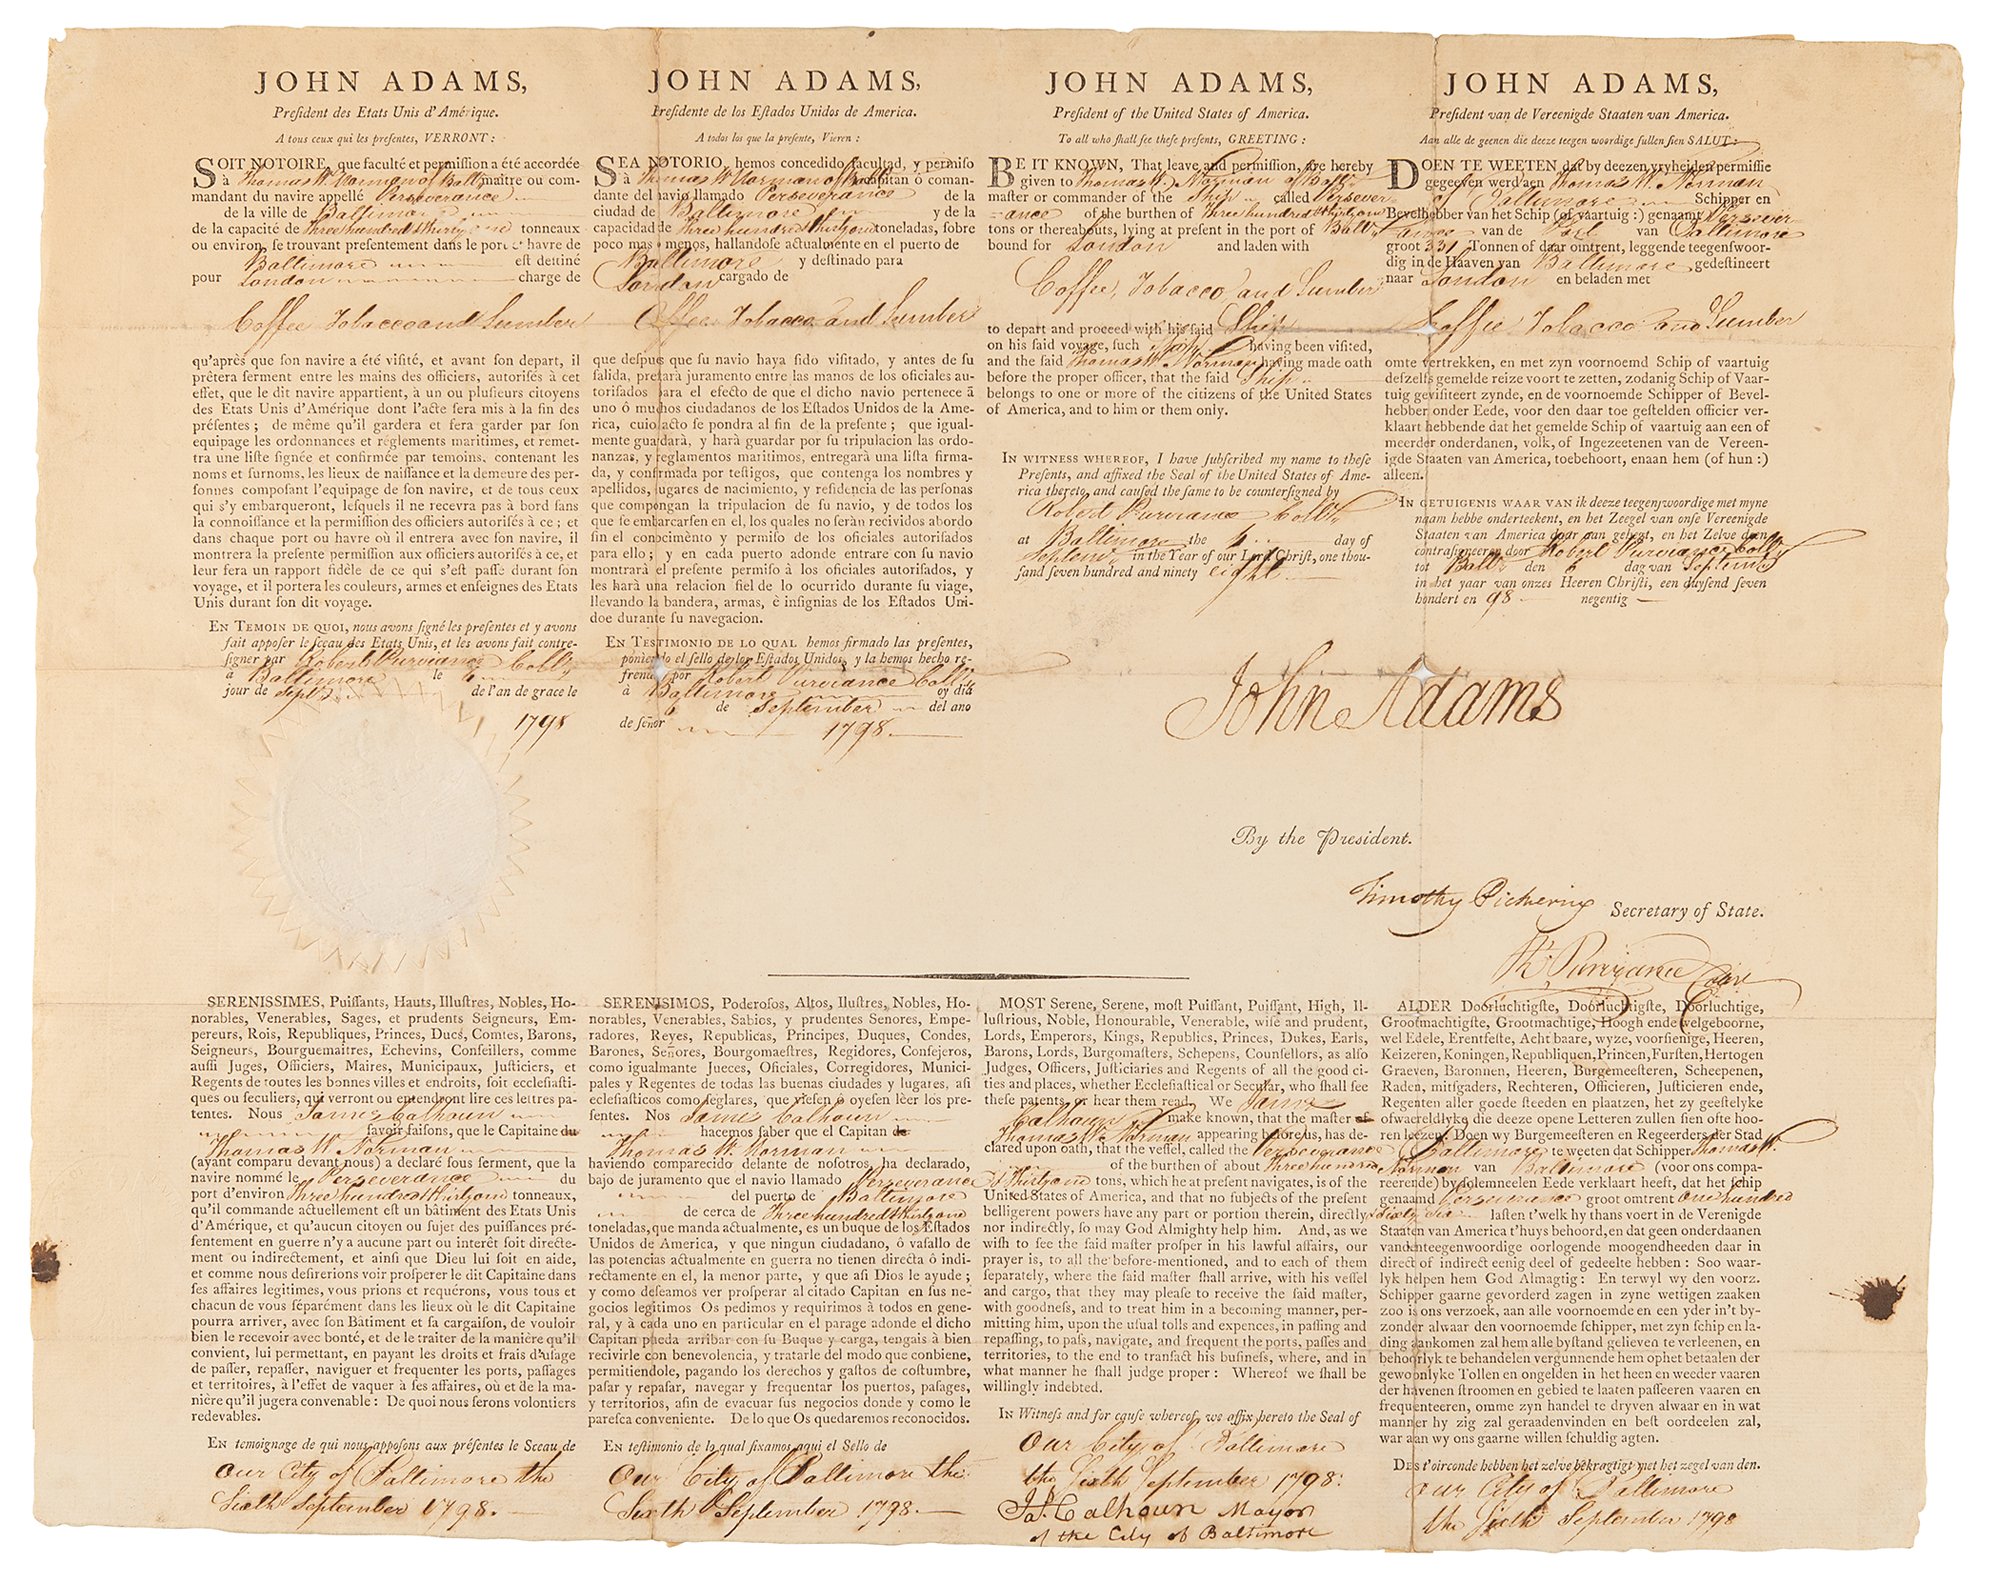 JOHN ADAMS,
Preſident des Etats Unis d'Amérique.
A tous ceux qui les preſentes, VERRONT:
SOIT NOTOIRE, que faculté et permiſſion a été accordée
à Thomas W. Norman of Balt maître ou com-
mandant du navire appellé Perseverance
de la ville de Baltimore
de la capacité de three hundred & thirty one tonneaux
ou environ, ſe trouvant preſentement dans le port havre de
Baltimore eſt deſtiné
pour London charge de
Coffee Tobacco and Lumber
qu'après que ſon navire a été viſité, et avant ſon depart, il
prêtera ſerment entre les mains des officiers, autoriſés à cet
effet, que le dit navire appartient, à un ou pluſieurs citoyens
des Etats Unis d'Amérique dont l'acte ſera mis à la fin des
préſentes; de même qu'il gardera et fera garder par ſon
equipage les ordonnances et réglements maritimes, et remet-
tra une liſte ſignée et confirmée par temoins, contenant les
noms et ſurnoms, les lieux de naiſſance et la demeure des per-
ſonnes compoſant l'equipage de ſon navire, et de tous ceux
qui s'y embarqueront, leſquels il ne recevra pas à bord ſans
la connoiſſance et la permiſſion des officiers autoriſés à ce; et
dans chaque port ou havre où il entrera avec ſon navire, il
montrera la preſente permiſſion aux officiers autoriſés à ce, et
leur fera un rapport fidèle de ce qui s'eſt paſſé durant ſon
voyage, et il portera les couleurs, armes et enſeignes des Etats
Unis durant ſon dit voyage.
EN TEMOIN DE QUOI, nous avons ſigné les preſentes et y avons
fait appoſer le ſceau des Etats Unis, et les avons fait contre-
ſigner par Robert Purviance Collr.
à Baltimore le 6
jour de Septr. de l'an de grace le
1798
JOHN ADAMS,
Preſidente de los Eſtados Unidos de America.
A todos los que la preſente, Vieren:
SEA NOTORIO, hemos concedido facultad, y permiſo
à Thomas W. Norman of Balt Capitan ó coman-
dante del navio llamado Perseverance de la
ciudad de Baltimore y de la
capacidad de three hundred & thirty one toneladas, ſobre
poco mas ó menos, hallandoſe actualmente en el puerto de
Baltimore y deſtinado para
London cargado de
Coffee Tobacco and Lumber
que deſpues que ſu navio haya ſido viſitado, y antes de ſu
ſalida, preſtarà juramento entre las manos de los oficiales au-
toriſados para el efecto de que el dicho navio pertenece ā
uno ó muchos ciudadanos de los Eſtados Unidos de la Ame-
rica, cuio acto ſe pondra al fin de la preſente; que igual-
mente guardarà, y harà guardar por ſu tripulacion las ordo-
nanzas, y reglamentos maritimos, entregarà una liſta firma-
da, y confirmada por teſtigos, que contenga los nombres y
apellidos, lugares de nacimiento, y reſidencia de las perſonas
que compongan la tripulacion de ſu navio, y de todos los
que ſe embarcarſen en el, los quales no ſeràn recividos abordo
ſin el conocimènto y permiſo de los oficiales autoriſados
para ello; y en cada puerto adonde entrare con ſu navio
montrarà el preſente permiſo à los oficiales autoriſados, y
les harà una relacion fiel de lo ocurrido durante ſu viage,
llevando la bandera, armas, è inſignias de los Eſtados Uni-
doe durante ſu navegacion.
EN TESTIMONIO DE LO QUAL hemos firmado las preſentes,
poniendo el ſello de los Eſtados Unidos, y la hemos hecho re-
frendar por Robert Purviance Collr.
à Baltimore oy dia
6 de September del ano
de ſeñor 1798.
JOHN ADAMS,
Preſident of the United States of America.
To all who ſhall ſee theſe preſents, GREETING:
BE IT KNOWN, That leave and permiſſion, are hereby
given to Thomas W. Norman of Balt.
maſter or commander of the Ship called Persever-
ance of the burthen of three hundred & thirty one
tons or thereabouts, lying at preſent in the port of Baltr.
bound for London and laden with
Coffee, Tobacco, and Lumber
to depart and proceed with his ſaid Ship
on his ſaid voyage, ſuch Ship having been viſited,
and the ſaid Thomas W. Norman having made oath
before the proper officer, that the ſaid Ship
belongs to one or more of the citizens of the United States
of America, and to him or them only.
IN WITNESS WHEREOF, I have ſubſcribed my name to theſe
Preſents, and affixed the Seal of the United States of Ame-
rica thereto, and cauſed the ſame to be counterſigned by
Robert Purviance Collr.
at Baltimore the 6 day of
Septem in the Year of our Lord Chriſt, one thou-
ſand ſeven hundred and ninety eight.
JOHN ADAMS,
Preſident van de Vereenigde Staaten van America.
Aan alle de geenen die deeze teegen woordige ſullen ſien SALUT:
DOEN TE WEETEN dat by deezen vryheiden permiſſie
gegeeven werd aen Thomas W. Norman
of Baltimore Schipper en
Bevelhebber van het Schip (of vaartuig:) genaamt Persever-
ance van de Port van Baltimore
groot 331 Tonnen of daar ointrent, leggende teegenſwoor-
dig in de Haaven van Baltimore gedeſtineert
naar London en beladen met
Coffee Tobacco and Lumber
omte vertrekken, en met zyn voornoemd Schip of vaartuig
deſzelfs gemelde reize voort te zetten, zodanig Schip of Vaar-
tuig geviſiteert zynde, en de voornoemde Schipper of Bevel-
hebber onder Eede, voor den daar toe geſtelden officier ver-
klaart hebbende dat het gemelde Schip of vaartuig aan een of
meerder onderdanen, volk, of Ingezeetenen van de Vereen-
igde Staaten van America, toebehoort, enaan hem (of hun:)
alleen.
IN GETUIGENIS WAAR VAN ik deeze teegenzwoordige met myne
naam hebbe onderteekent, en het Zeegel van onſe Vereenigde
Staaten van America daar aan gehegt, en het Zelve doen
contraſigneeren door Robert Purviance Collr.
tot Baltr. den 6 dag van Septemb
in het yaar van onzes Heeren Chriſti, een duyſend ſeven
hondert en 98 negentig
John Adams
By the President.
Timothy Pickering Secretary of State.
Rt Purviance Collr
SERENISSIMES, Puiſſants, Hauts, Illuſtres, Nobles, Ho-
norables, Venerables, Sages, et prudents Seigneurs, Em-
pereurs, Rois, Republiques, Princes, Ducs, Comtes, Barons,
Seigneurs, Bourguemaîtres, Echevins, Conſeillers, comme
auſſi Juges, Officiers, Maires, Municipaux, Juſticiers, et
Regents de toutes les bonnes villes et endroits, ſoit eccleſiaſti-
ques ou ſeculiers, qui verront ou entendront lire ces lettres pa-
tentes. Nous James Calhoun
ſavoir faiſons, que le Capitaine du
Thomas W Norman
(ayant comparu devant nous) a declaré ſous ſerment, que la
navire nommé le Perseverance du
port d'environ three hundred & thirty one tonneaux,
qu'il commande actuellement eſt un bâtiment des Etats Unis
d'Amérique, et qu'aucun citoyen ou ſujet des puiſſances pré-
ſentement en guerre n'y a aucune part ou interêt ſoit directe-
ment ou indirectement, et ainſi que Dieu lui ſoit en aide,
et comme nous deſirerions voir proſperer le dit Capitaine dans
ſes affaires legitimes, vous prions et requérons, vous tous et
chacun de vous ſéparément dans les lieux où le dit Capitaine
pourra arriver, avec ſon Bâtiment et ſa cargaiſon, de vouloir
bien le recevoir avec bonté, et de le traiter de la manière qu'il
convient, lui permettant, en payant les droits et frais d'uſage
de paſſer, repaſſer, naviguer et frequenter les ports, paſſages
et territoires, à l'effet de vaquer à ſes affaires, où et de la ma-
nière qu'il jugera convenable: De quoi nous ſerons volontiers
redevables.
EN temoignage de qui nous appoſons aux préſentes le Sceau de
Our City of Baltimore the
Sixth September 1798.
SERENISIMOS, Poderoſos, Altos, Iluſtres, Nobles, Ho-
norables, Venerables, Sabios, y prudentes Senores, Empe-
radores, Reyes, Republicas, Principes, Duques, Condes,
Barones, Señores, Bourgomaeſtres, Regidores, Conſejeros,
como igualmante Jueces, Oficiales, Corregidores, Munici-
pales y Regentes de todas las buenas ciudades y lugares, aſi
ecleſiaſticos como ſeglares, que vieſen o oyeſen lèer los pre-
ſentes. Nos James Calhoun
hacemos ſaber que el Capitan de
Thomas W. Norman
haviendo comparecido delante de noſotros, ha declarado,
bajo de juramento que el navio llamado Perseverance
del puerto de Baltimore
de cerca de three hundred & thirty one
toneladas, que manda actualmente, es un buque de los Eſtados
Unidos de America, y que ningun ciudadano, ô vaſallo de
las potencias actualmente en guerra no tienen directa ô indi-
rectamente en el, la menor parte, y que aſi Dios le ayude;
y como deſeamos ver proſperar al citado Capitan en ſus ne-
gocios legitimos Os pedimos y requirimos à todos en gene-
ral, y à cada uno en particular en el parage adonde el dicho
Capitan pueda arribar con ſu Buque y carga, tengais à bien
recivirle con benevolencia, y tratarle del modo que conbiene,
permitiendole, pagando los derechos y gaſtos de coſtumbre,
paſar y repaſar, navegar y frequentar los puertos, paſages,
y territorios, aſin de evacuar ſus negocios donde y como le
pareſca conveniente. De lo que Os quedaremos reconocidos.
EN teſtimonio de lo qual ſixamos aqui el Sello de
Our City of Baltimore the
Sixth September 1798.
MOST Serene, Serene, moſt Puiſſant, Puiſſant, High, Il-
luſtrious, Noble, Honourable, Venerable, wiſe and prudent,
Lords, Emperors, Kings, Republics, Princes, Dukes, Earls,
Barons, Lords, Burgomaſters, Schepens, Counſellors, as alſo
Judges, Officers, Juſticiaries and Regents of all the good ci-
ties and places, whether Eccleſiaſtical or Secular, who ſhall ſee
theſe patents, or hear them read. We James
Calhoun make known, that the maſter of
Thomas W. Norman appearing before us, has de-
clared upon oath, that the veſſel, called the Perseverance
of the burthen of about three hundred
& thirty one tons, which he at preſent navigates, is of the
United States of America, and that no ſubjects of the preſent
belligerent powers have any part or portion therein, directly
nor indirectly, ſo may God Almighty help him. And, as we
wiſh to ſee the ſaid maſter proſper in his lawful affairs, our
prayer is, to all the before-mentioned, and to each of them
ſeparately, where the ſaid maſter ſhall arrive, with his veſſel
and cargo, that they may pleaſe to receive the ſaid maſter,
with goodneſs, and to treat him in a becoming manner, per-
mitting him, upon the uſual tolls and expences, in paſſing and
repaſſing, to paſs, navigate, and frequent the ports, paſſes and
territories, to the end to tranſact his buſineſs, where, and in
what manner he ſhall judge proper: Whereof we ſhall be
willingly indebted.
IN Witneſs and for cauſe whereof, we affix hereto the Seal of
Our City of Baltimore
the Sixth September 1798:
Jas. Calhoun Mayor
of the City of Baltimore
ALDER Doorluchtigſte, Doorluchtigſte, Doorluchtige,
Grootmachtigſte, Grootmachtige, Hoogh ende welgeboorne,
wel Edele, Erentfeſte, Acht baare, wyze, voorſienige, Heeren,
Keizeren, Koningen, Republiquen, Princen, Furſten, Hertogen
Graeven, Baronnen, Heeren, Burgemeeſteren, Scheepenen,
Raden, mitſgaders, Rechteren, Officieren, Juſticieren ende,
Regenten aller goede ſteeden en plaatzen, het zy geeſtelyke
ofwaereldlyke die deeze opene Letteren zullen ſien ofte hoo-
ren leezen: Doen wy Burgemeeſteren en Regeerders der Stad
Baltimore te weeten dat Schipper Thomas W.
Norman van Baltimore (voor ons compa-
reerende) by ſolemneelen Eede verklaart heeft, dat het ſchip
genaamd Perseverance groot omtrent One hundred
& sixty six laſten t'welk hy thans voert in de Verenigde
Staaten van America t'huys behoord, en dat geen onderdaanen
vandenteegenwoordige oorlogende moogendheeden daar in
direct of indirect eenig deel of gedeelte hebben: Soo waar-
lyk helpen hem God Almagtig: En terwyl wy den voorz.
Schipper gaarne gevorderd zagen in zyne wettigen zaaken
zoo is ons verzoek, aan alle voornoemde en een yder in't by-
zonder alwaar den voornoemde ſchipper, met zyn ſchip en la-
ding aankomen zal hem alle byſtand gelieven te verleenen, en
behoorlyk te behandelen vergunnende hem ophet betaalen der
gewoonlyke Tollen en ongelden in het heen en weeder vaaren
der havenen ſtroomen en gebied te laaten paſſeeren vaaren en
frequenteeren, omme zyn handel te dryven alwaar en in wat
manner hy zig zal geraadenvinden en beſt oordeelen zal,
war aan wy ons gaarne willen ſchuldig agten.
DES t'oirconde hebben het zelve bekragtigt met het zegel van den.
Our City of Baltimore
the Sixth September 1798